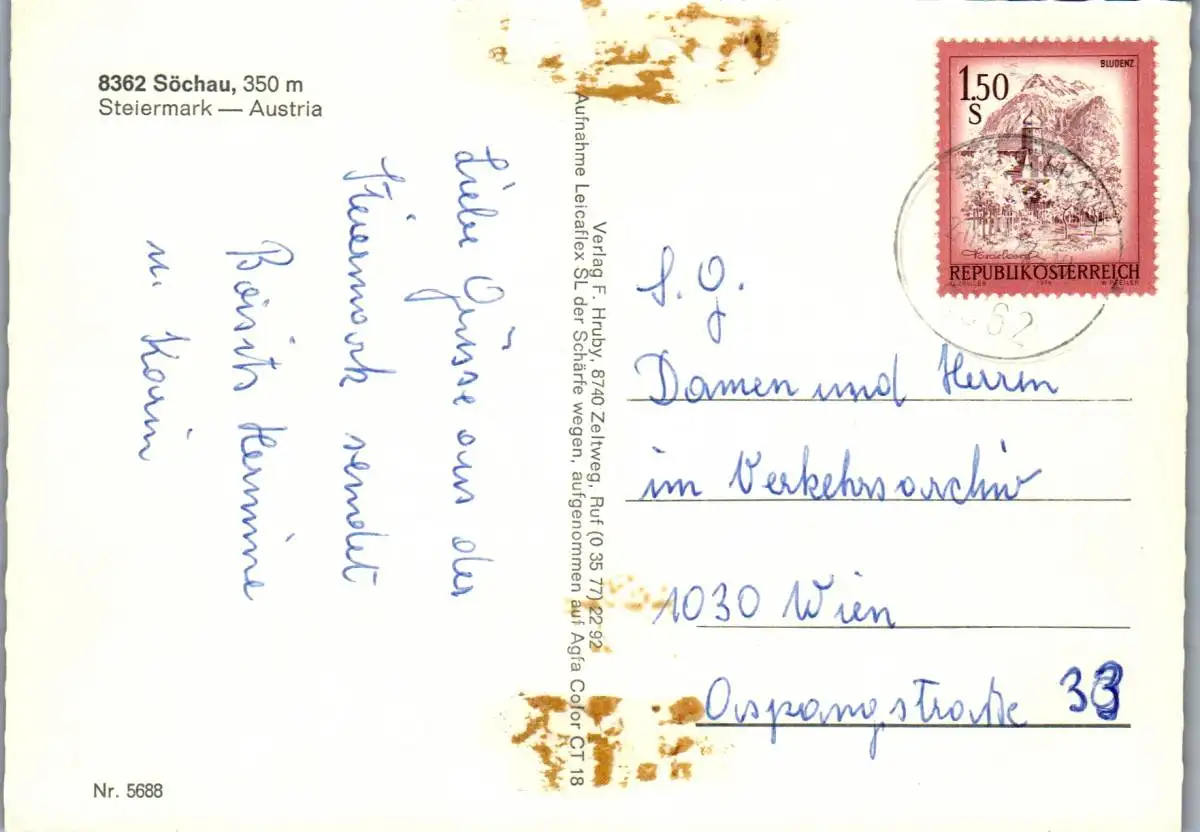 8362 Söchau, 350 m
Steiermark — Austria
Liebe Grüsse aus der
Steiermark sendet
Hermine
u. Karin
Nr. 5688
Verlag F. Hruby, 8740 Zeltweg, Ruf (0 35 77) 22 92
Aufnahme Leicaflex SL der Schärfe wegen, aufgenommen auf Agfa Color CT 18
BLUDENZ
1.50
S
Vorarlberg
REPUBLIK ÖSTERREICH
62
S. G.
Damen und Herren
im Verkehrsarchiv
1030 Wien
Aspangstraße 33